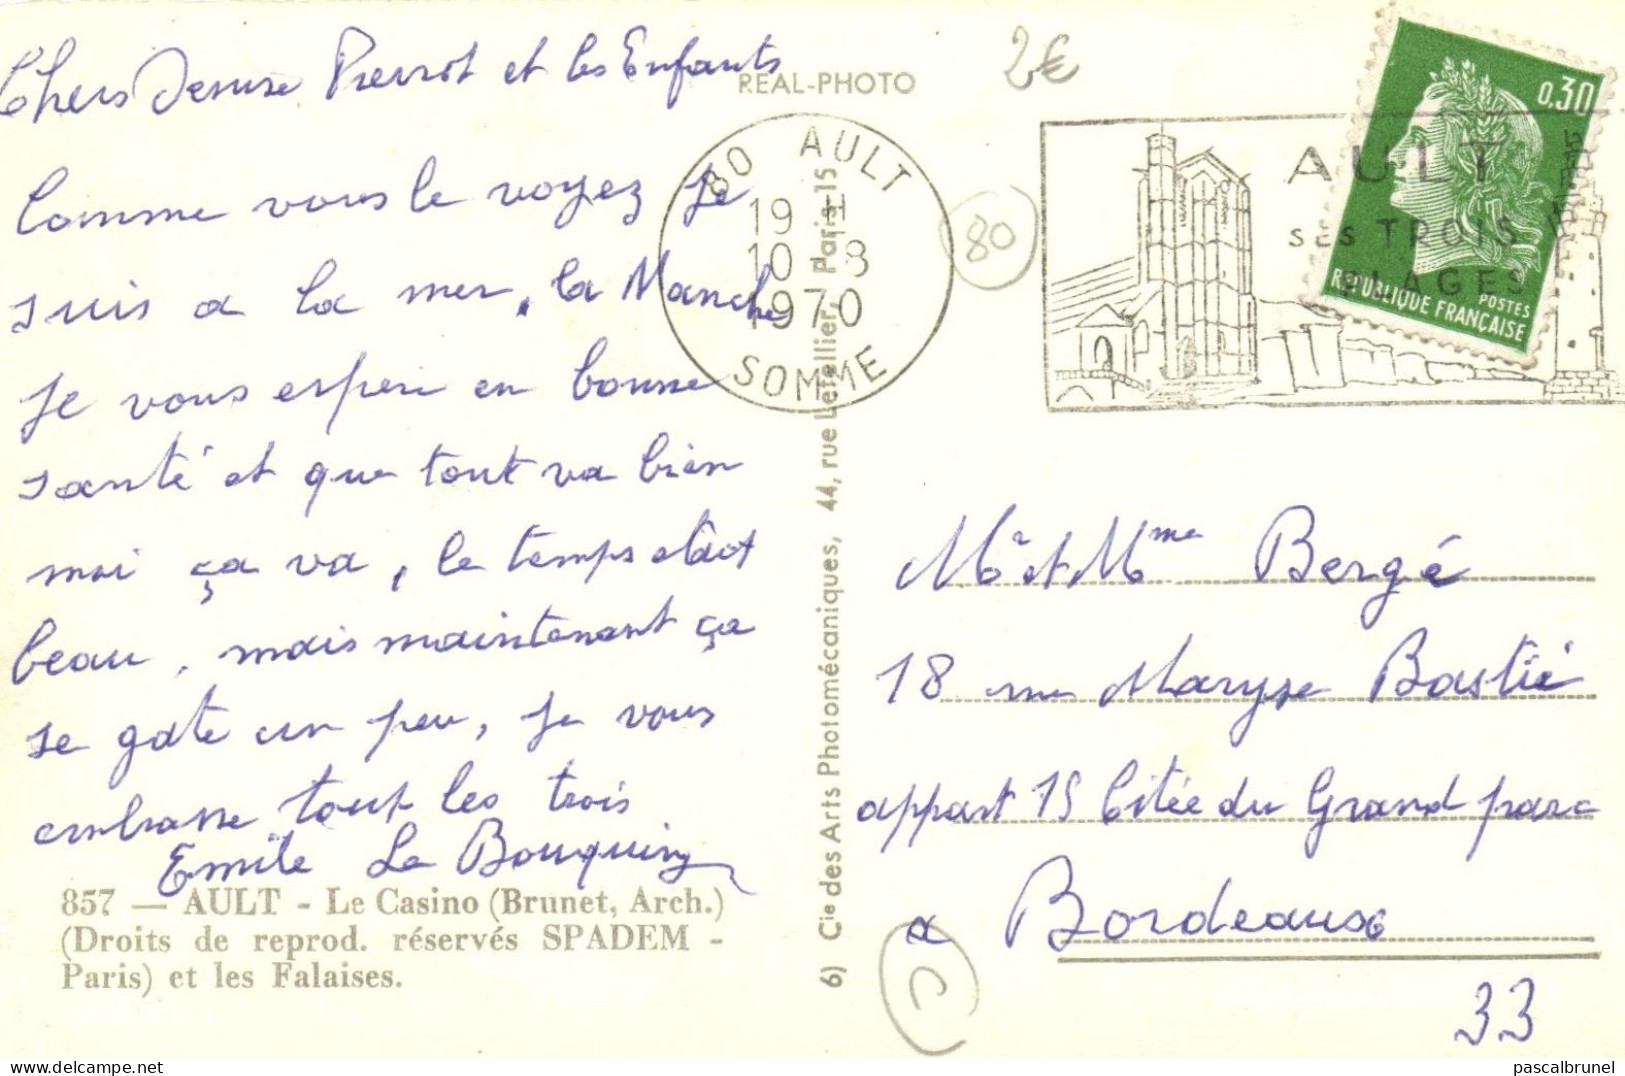 Chers Denise Pierrot et les Enfants
Comme vous le voyez je
suis a la mer, la Manche
je vous esper en bonne
santé et que tout va bien
moi ça va, le temps était
beau, mais maintenant ça
se gate un peu, je vous
embrasse tout les trois
Emile Le Bouquin
857 — AULT - Le Casino (Brunet, Arch.)
(Droits de reprod. réservés SPADEM -
Paris) et les Falaises.
REAL-PHOTO
6) Cie des Arts Photomécaniques, 44, rue Letellier, Paris-15
80 AULT
19 H
10-8
1970
SOMME
2€
80
AULT
SES TROIS
PLAGES
0,30
POSTES
REPUBLIQUE FRANÇAISE
Mr et Mme Bergé
18 rue Maryse Bastié
appart 15 Citée du Grand parc
a Bordeaux
33
C
pascalbrunel